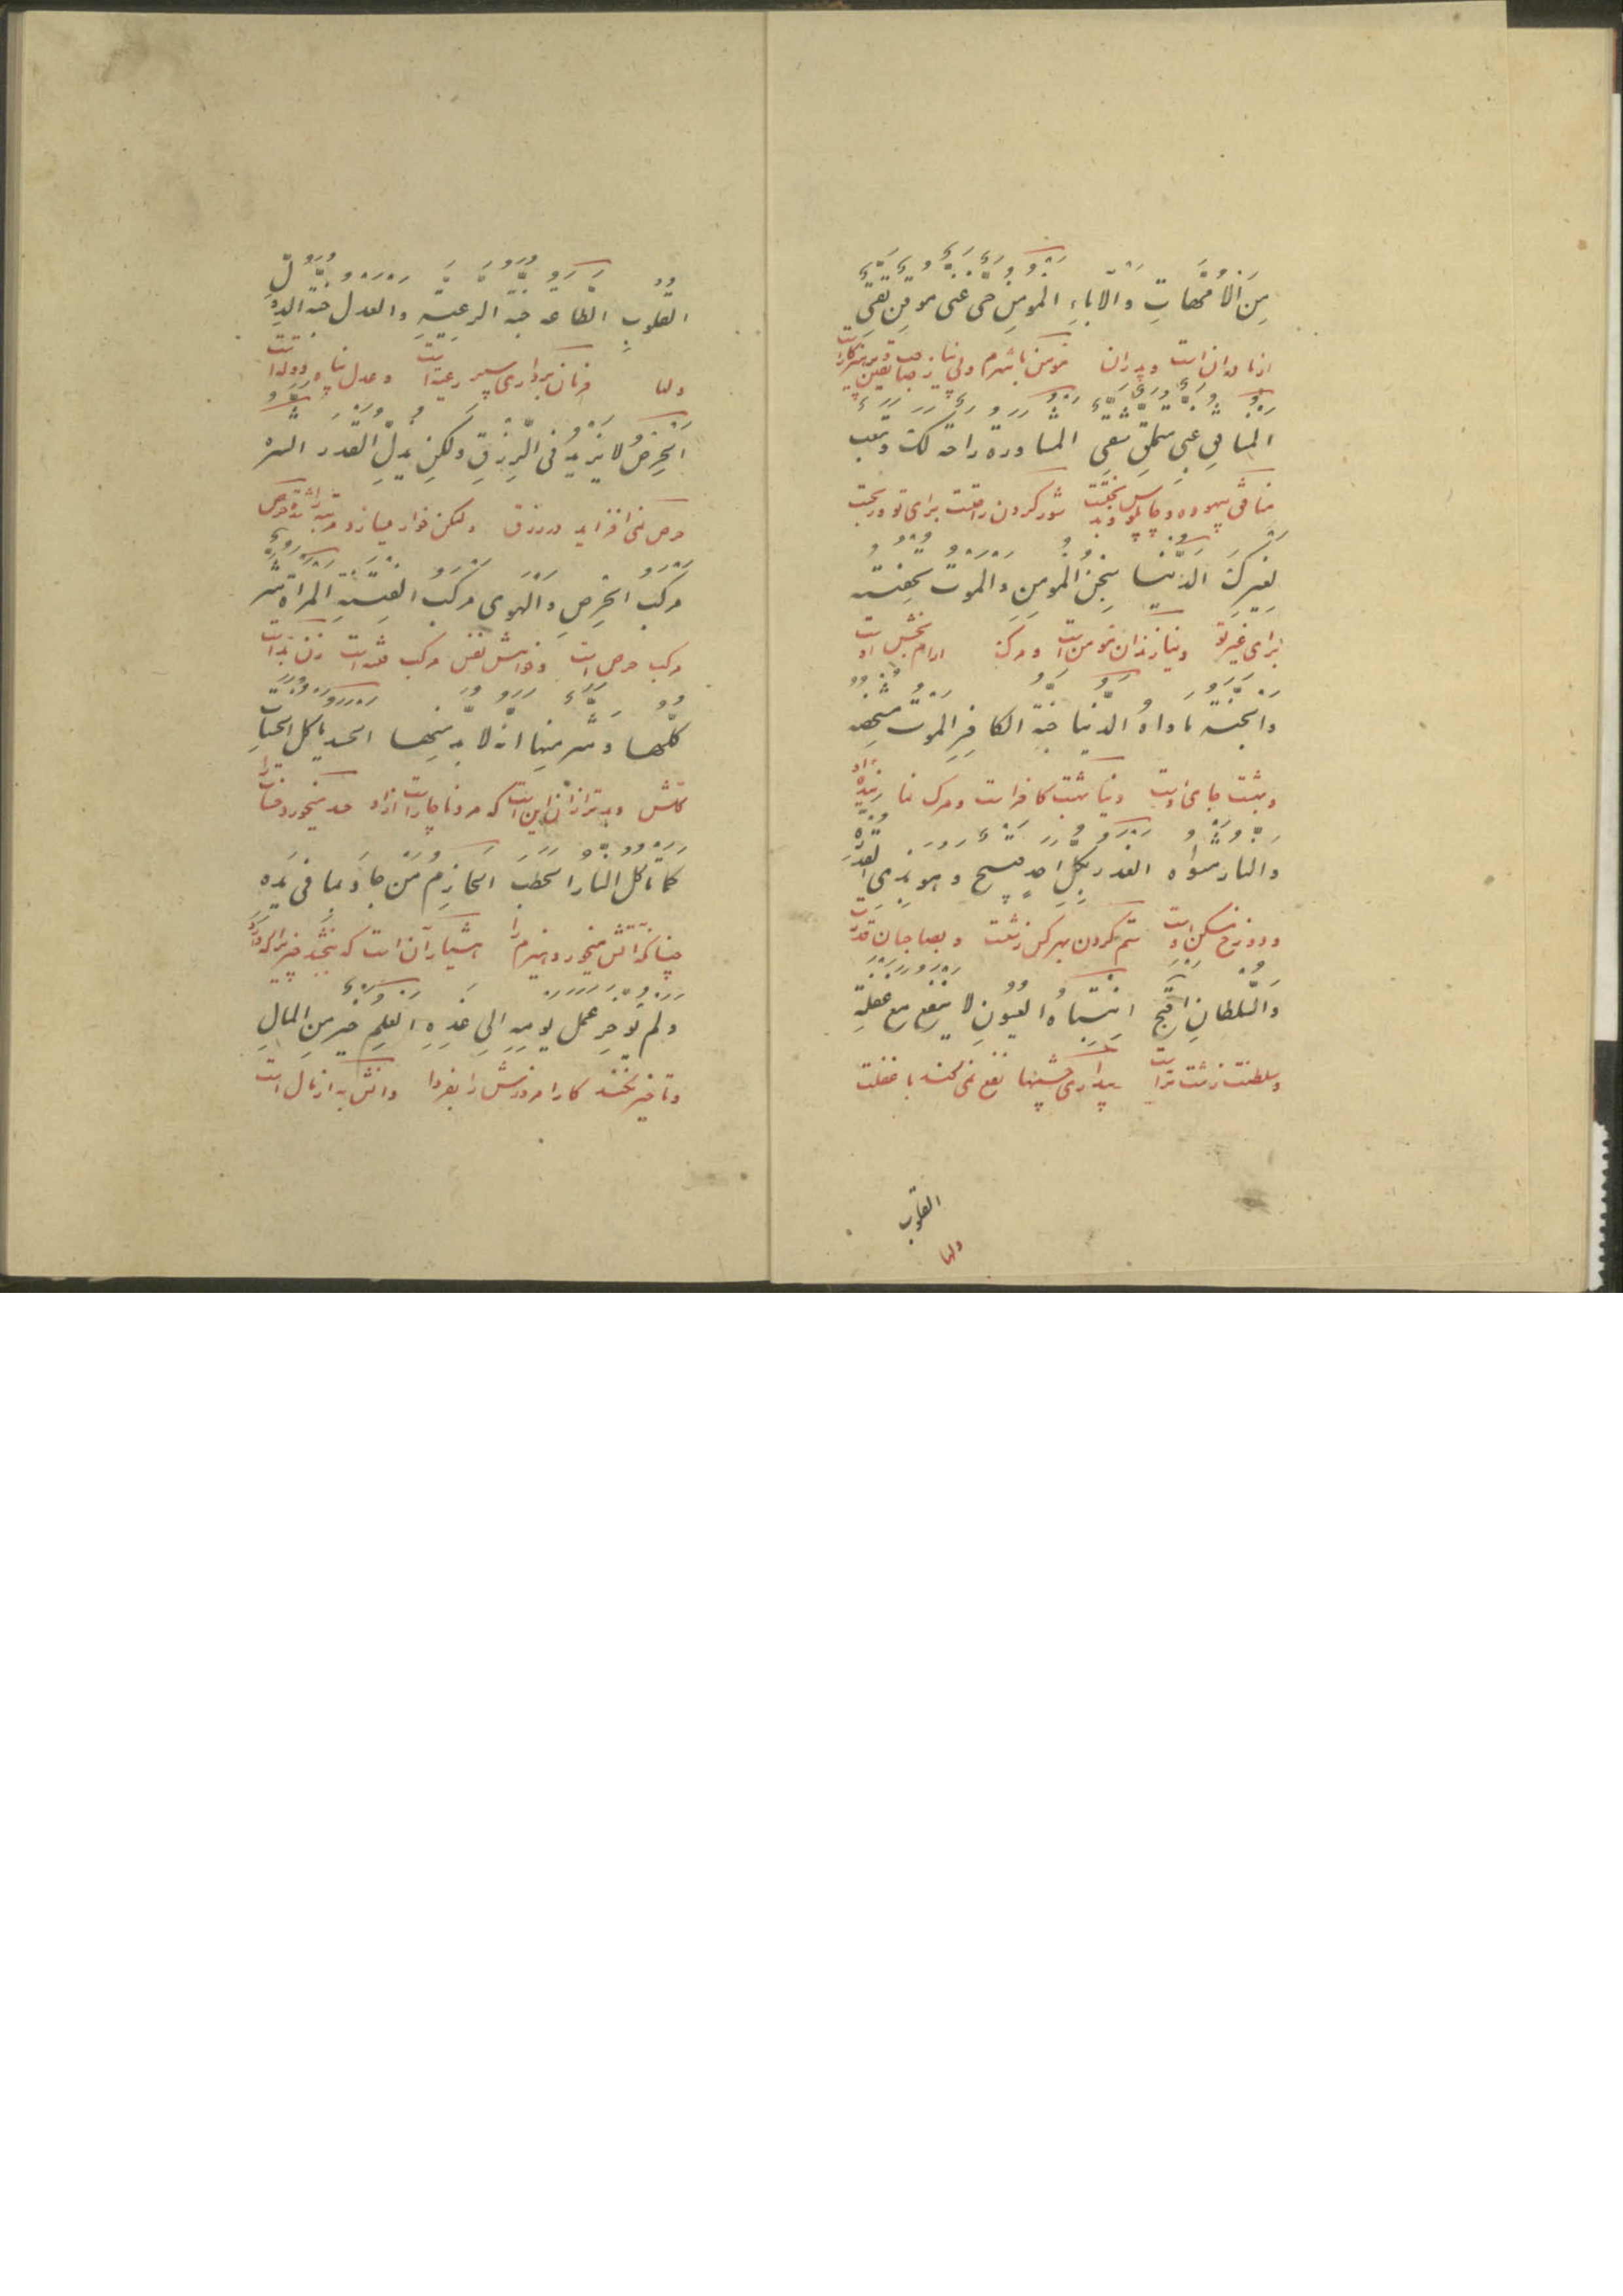 مِنَ الْاُمَّهاتِ وَالآباءِ المومِن حَیِیٌّ غَنِیٌّ موقِن تَقِیٌّ
از مادران است و پدران مومن با شرم و بی نیاز صاحب یقین پرهیزکار است
المنافق غبی متملق شقی المشاورة راحة لک و تعب
منافق بیهوده و چاپلوس و بدبخت شور کردن راحتست برای تو و رنجست
لغیرک الدّنیا سِجنُ المومِنِ وَالموت تحفته
برای غیر تو دنیا زندان مومن است و مرگ
وَالجنّة ماواهُ الدّنیا جنّة الکافِرِ الموت مشخصه
و بهشت جای اوست دنیا بهشت کافر است و مرک
والنار مثواه الغدر بکلِّ احدٍ قبیح وهو بذوی القدرة
و دوزخ مسکن اوست ستم کردن بهر کس زشتست و بصاحبان قدرت
وَالسّلطانِ اقبح انتباهُ العُیونِ لا ینفع مع غفلةِ
و سلطنت زشت تر است بیداری چشمها نفع نمی کند با غفلت
القلوب
دلها
القلوبِ الطّاعه جنّة الرعیّهِ والعدل جنّة الدول
دلها فرمان برداری سپر رعیت است و عدل پناه دولت است
الحِرصُ لا یَزیدُ فی الرّزقِ ولکِن یذلّ القدر الشره
حرص نمی افزاید در رزق ولکن خوار میسازد مرتبه را شدت حرص
مرکب الحِرصِ وَالهوی مرکب الفِتنةِ المراة شر
مرکب حرص است و خواهش نفس مرکب فتنه است زن بد است
کلّها و شر مِنها انه لا بد مِنها الحسد یاکل الحسنات
کلش و بدتر از ان این است که مرد ناچار است از او حسد میخورد حسنات را
کما تاکل النار الحطبَ الحازِم مَن جادَ بما فی یَدِه
چنانکه اتش میخورد هیزم را هشیار آن است که ببخشد چیزیرا که دارد
ولم یؤخِر عمل یومِهِ الی غدِهِ العلم خیر مِن المالِ
و تاخیر نکند کار امروزش را بفردا دانش به از مال است